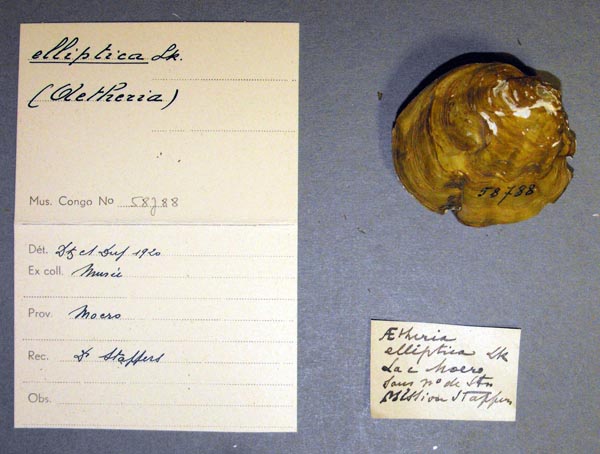 elliptica Lk.
(Aetheria)
Mus. Congo No 58788
Dét. Dtz et Duf 1920
Ex coll. Musée
Prov. Moero
Rec. Dr Stappers
Obs.
58788
Ætheria
elliptica Lk
Lac Moero
sans no de Stn
Mission Stappers